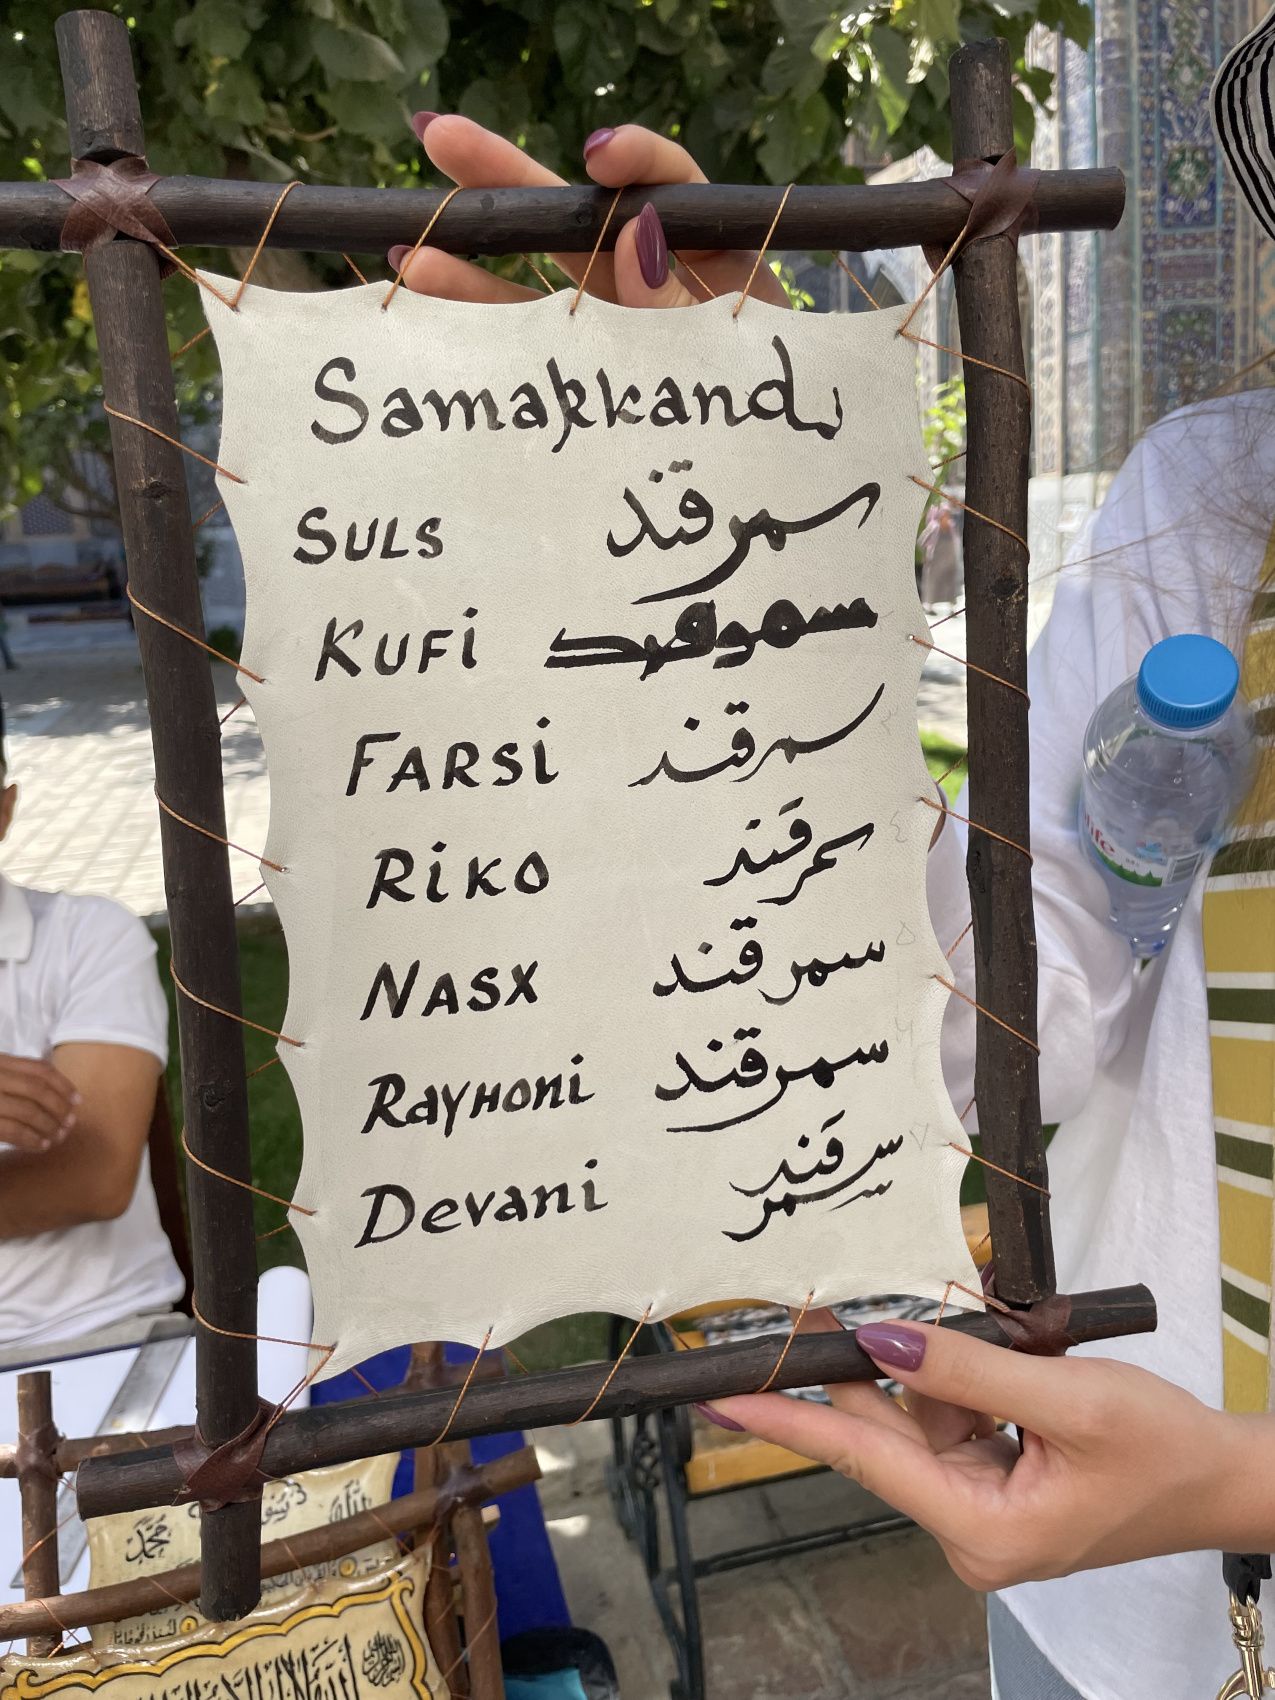 Samarkand
SULS سمرقند
KUFi سمرقند
FARSi سمرقند ٣
RiKO سمرقند ٤
NASX سمرقند ٥
RAYHONi سمرقند ٦
Devani سمرقند ٧
life
محمد